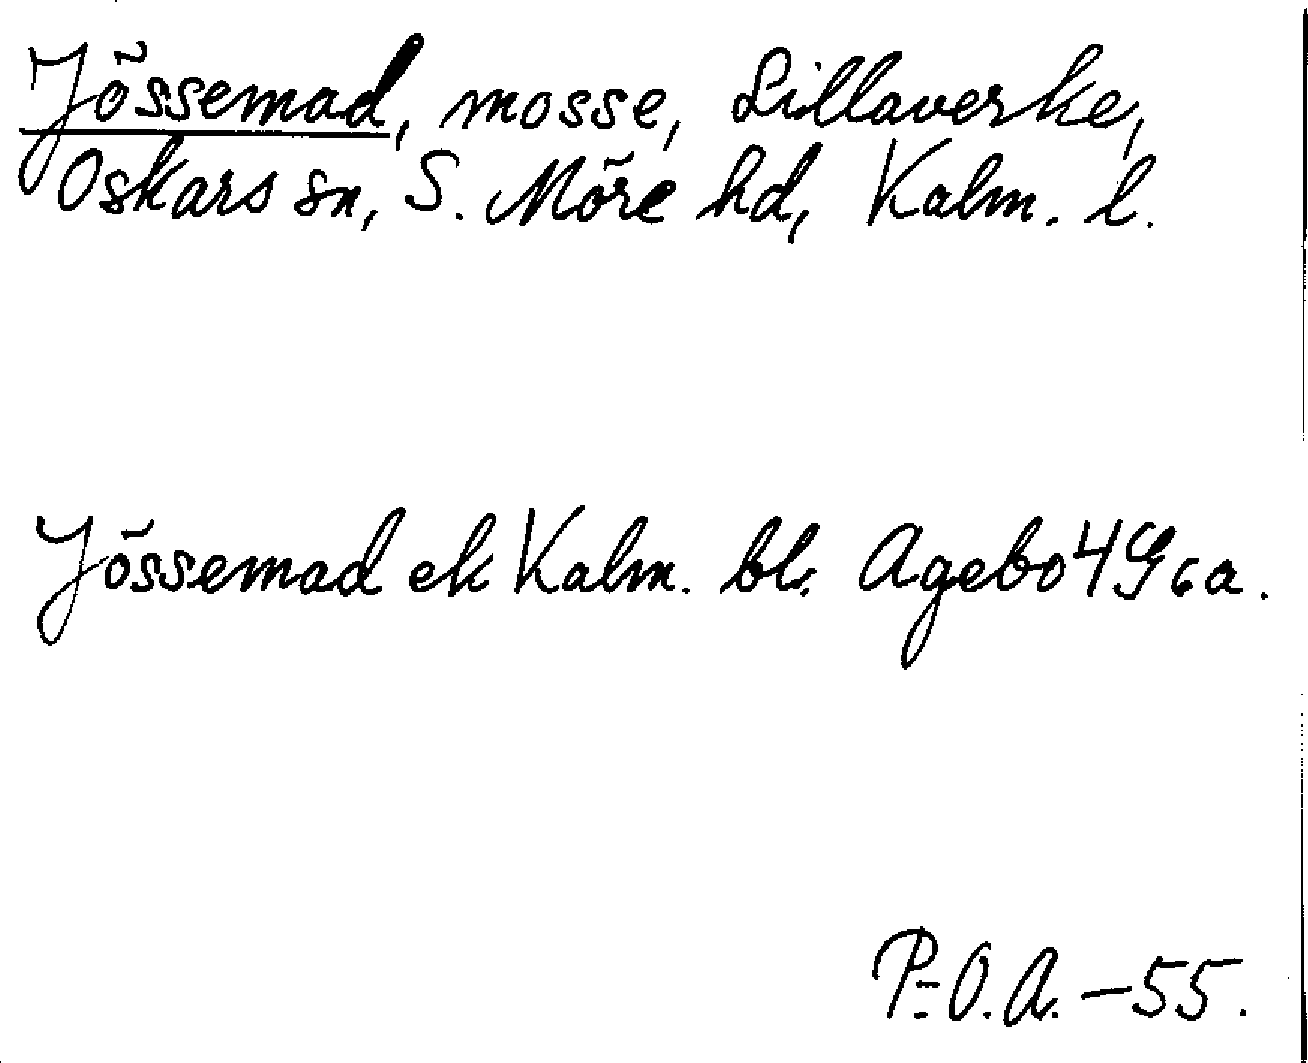 Jössemad, mosse, Lillaverke,
Oskars sn, S. Möre hd, Kalm. l.
Jössemad ek Kalm. bl. Agebo 4G6a.
P.-O.A. -55.